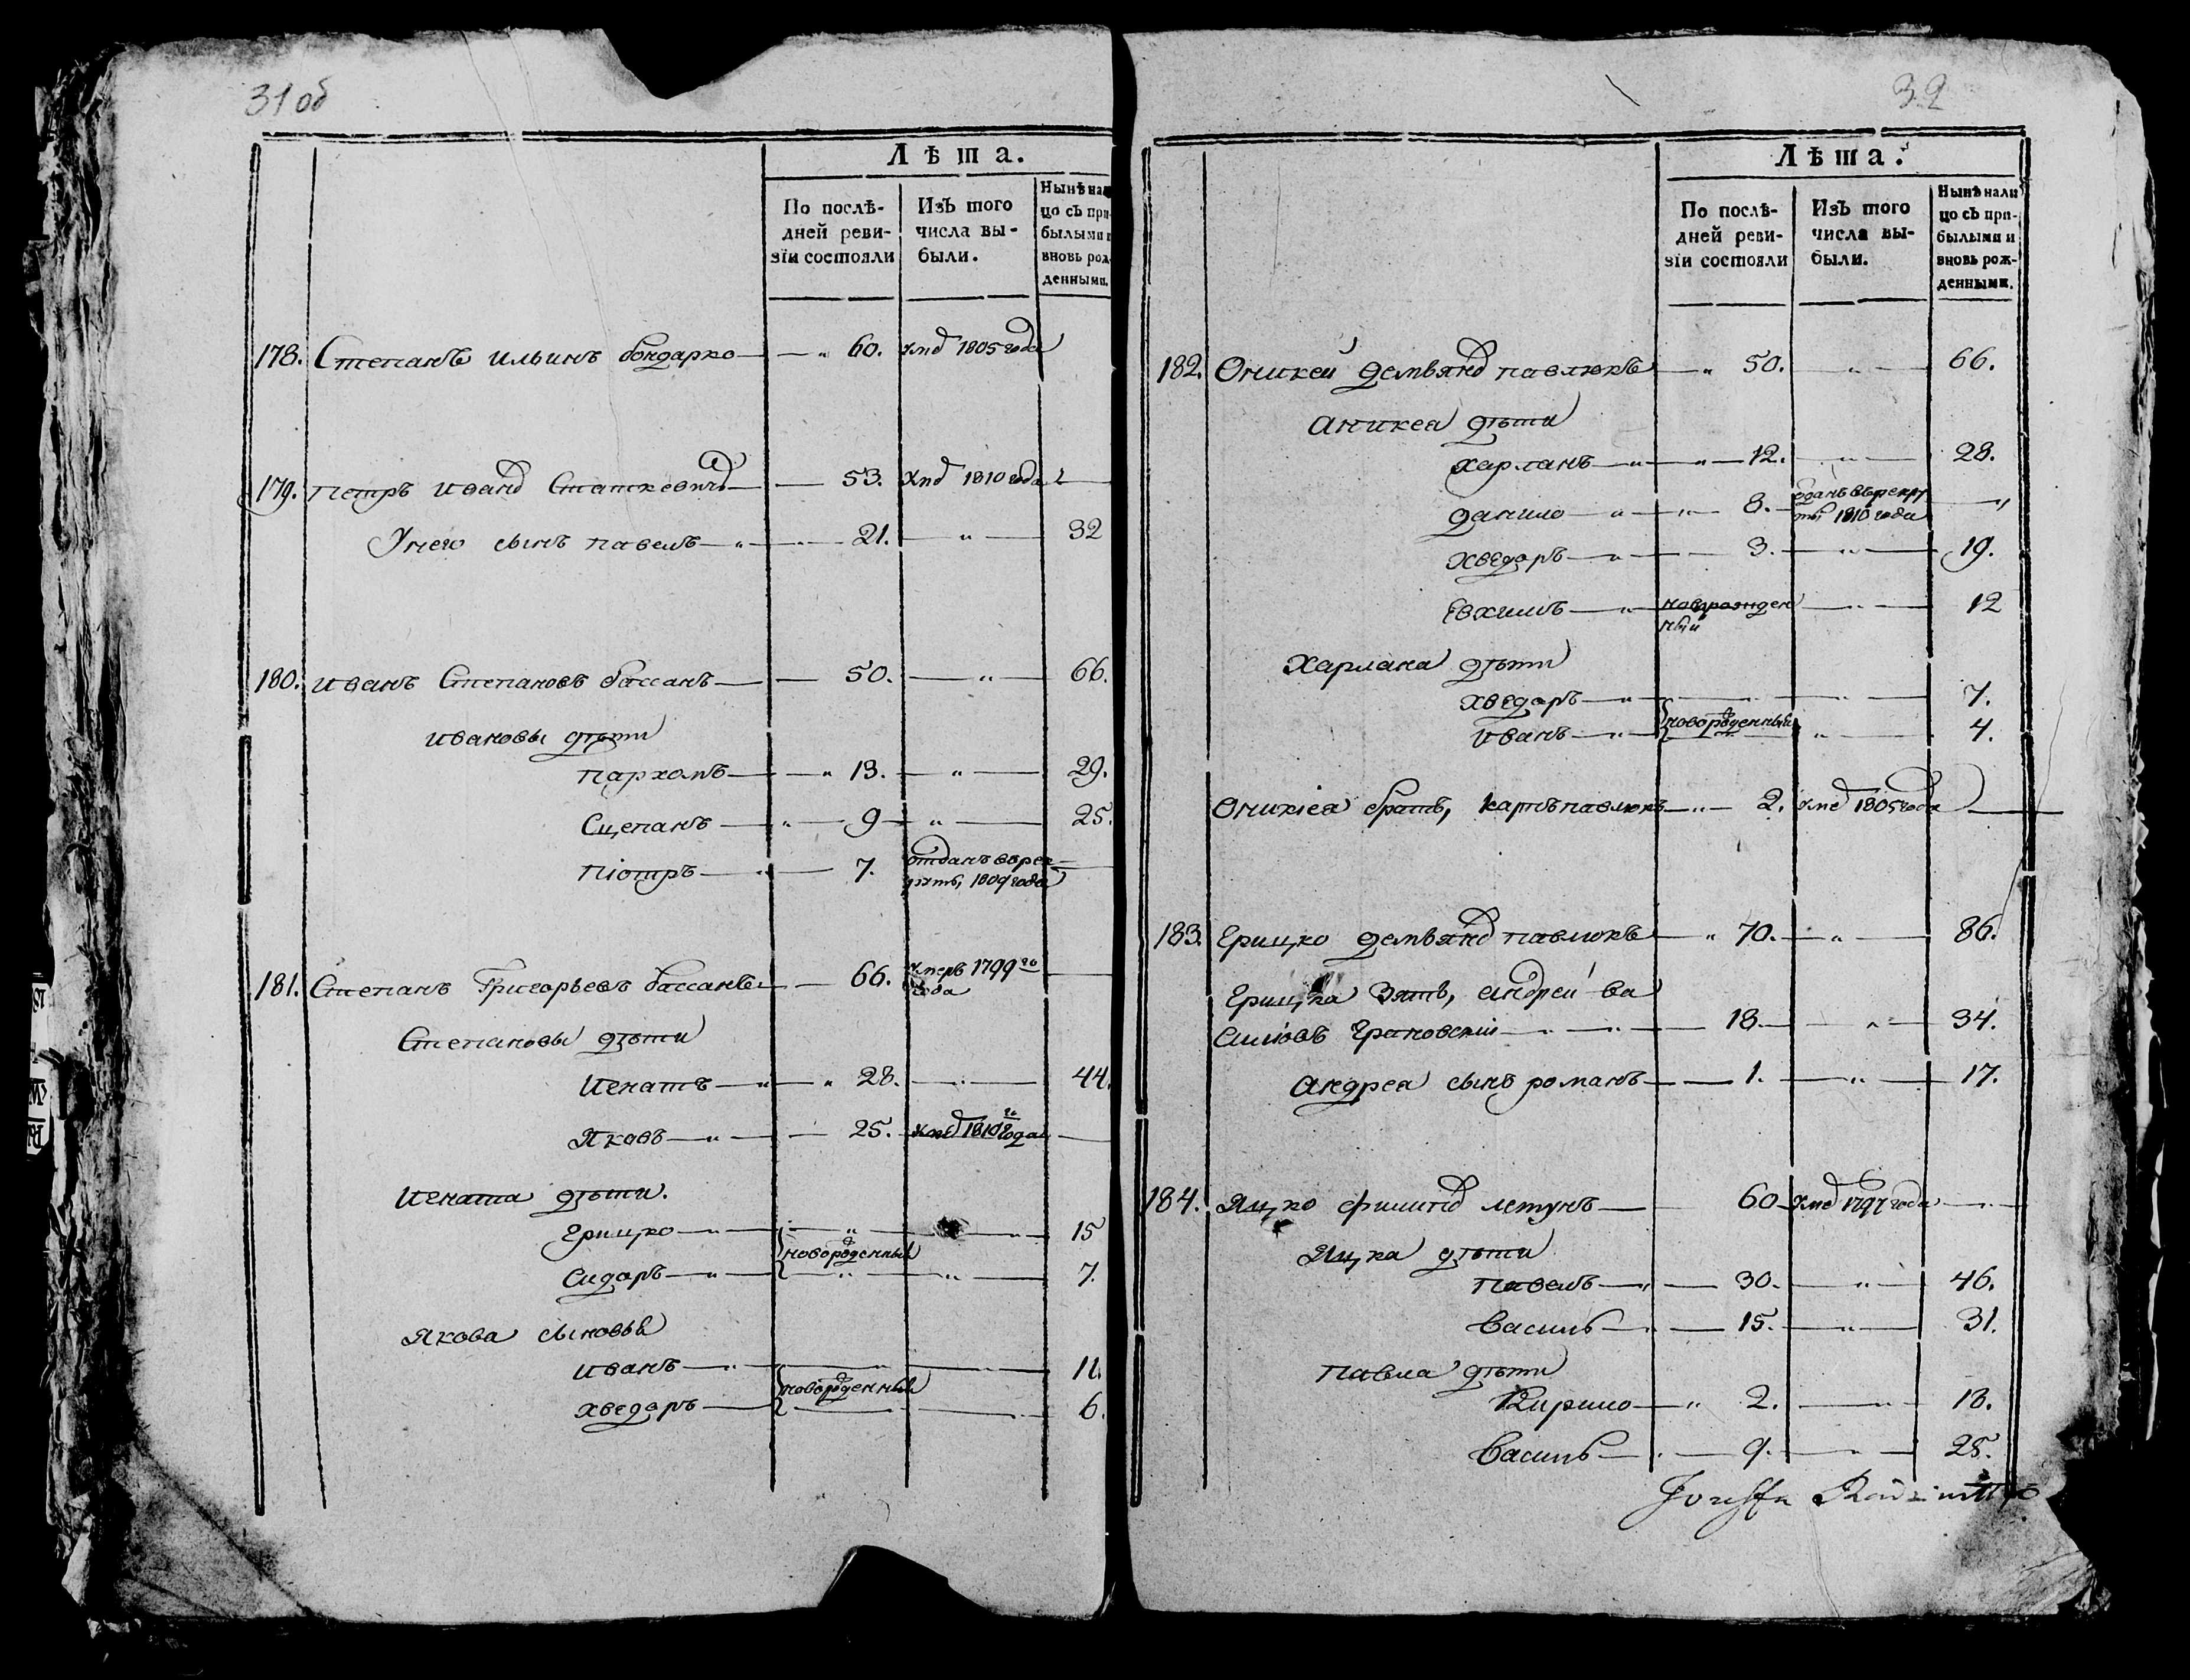 31 об
Лѣта.
По послѣ-
дней реви-
зіи состояли
Изъ того
числа вы-
были.
Нынѣ на
цо съ при-
былыми и
вновь рож-
денными.
178. Степанъ ильинъ бондарко 60. умъ 1805 года
179. петръ иванъ Статкевичъ 53. умъ 1810 года
Унего сынъ павелъ 21. 32
180. иванъ Степановъ бассанъ 50. 66.
ивановы дѣти
пархомъ 13. 29.
Сцепанъ 9 25.
піотръ 7. отданъ врек
рутъ, 1809 года
181. Степанъ Григорьевъ бассанъ 66. умеръ 1799 го
года
Степановы дѣти
игнатъ 28. 44.
Яковъ 25. умъ 1810 го года
игната дѣти.
грицко 15
новорожденныи
сидаръ 7.
Якова сыновья
иванъ 11.
новорожденныи
хведаръ 6.
32
Лѣта.
По послѣ-
дней реви-
зіи состояли
Изъ того
числа вы-
были.
Нынѣ нали
цо съ при-
былыми и
вновь рож-
денными.
182. Оникей демьянъ павлюкъ 50. 66.
аникея дѣти
харланъ 12. 28.
данило 8. оданъ въ рекру
ты 1810 года
хведаръ 3. 19.
Евхимъ новорожден 12
ный
Харлана дѣти
хведаръ 7.
новорожденныи
иванъ 4.
Оникіея братъ, карпъ павлюкъ 2. умъ 1805 года
183. грицко демьянъ павлюкъ 70. 86.
грицка зять, андрей ва
силіовъ грановскій 18. 34.
андрея сынъ романъ 1. 17.
184. Яцко филипъ летунъ 60 умъ 1797 года
Яцка дѣти
павелъ 30. 46.
василь 15. 31.
павла дѣти
Кирило 2. 18.
василь 9. 25.